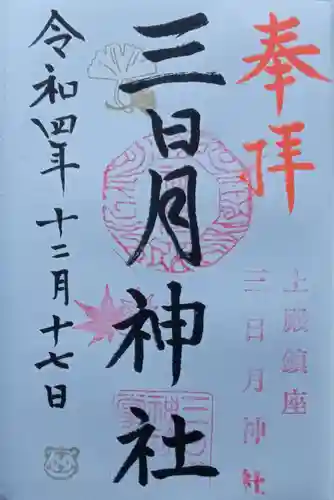 奉拝
上殿鎮座
三日月神社
三日月神社
令和四年十二月十七日